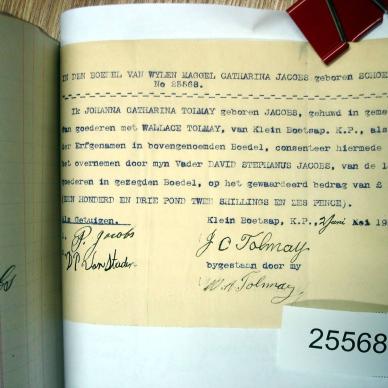 IN DEN BOEDEL VAN WYLEN MAGGEL CATHARINA JACOBS geboren SCHO
No 25568.
Ik JOHANNA CATHARINA TOLMAY geboren JACOBS, gehuwd in geme
van goederen met WALLACE TOLMAY, van Klein Boetsap. K.P., als
der Erfgenamen in bovengenoemden Boedel, consenteer hiermede
het overnemen door myn Vader DAVID STEPHANUS JACOBS, van de
goederen in gezegden Boedel, op het gewaardeerd bedrag van £
(EEN HONDERD EN DRIE POND TWEE SHILLINGS EN ZES PENCE).
Als Getuigen. Klein Boetsap, K.P., 2 Juni Mei 19
P. Jacobs
J C Tolmay
D P Van Staden
bygestaan door my
W. A. Tolmay
25568